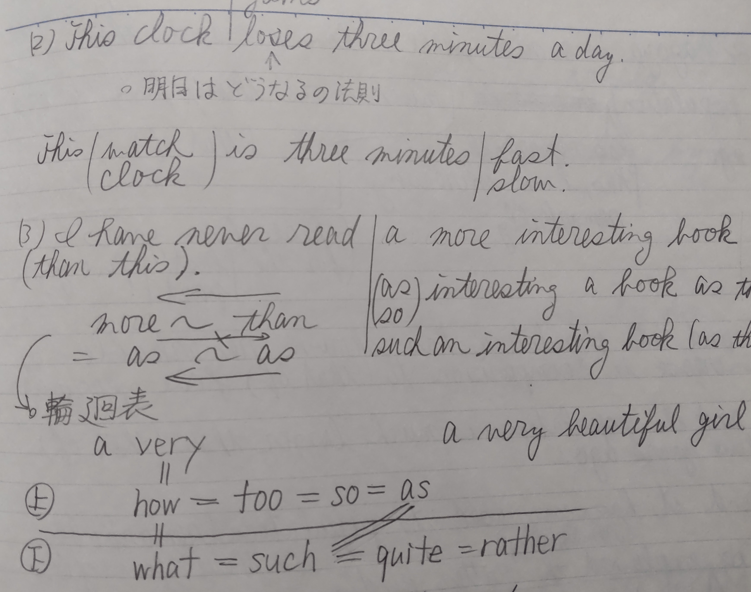 (2) This clock | loses three minutes a day.
↑
。明日はどうなるの法則
This (watch) is three minutes | fast.
(clock) | slow.
(3) I have never read | a more interesting book
(than this). | (as) interesting a book as
(so)
more ~ than | such an interesting book (as
= as ~ as
。輪廻表
a very
a very beautiful girl
||
上 how = too = so = as
||
下 what = such = quite = rather